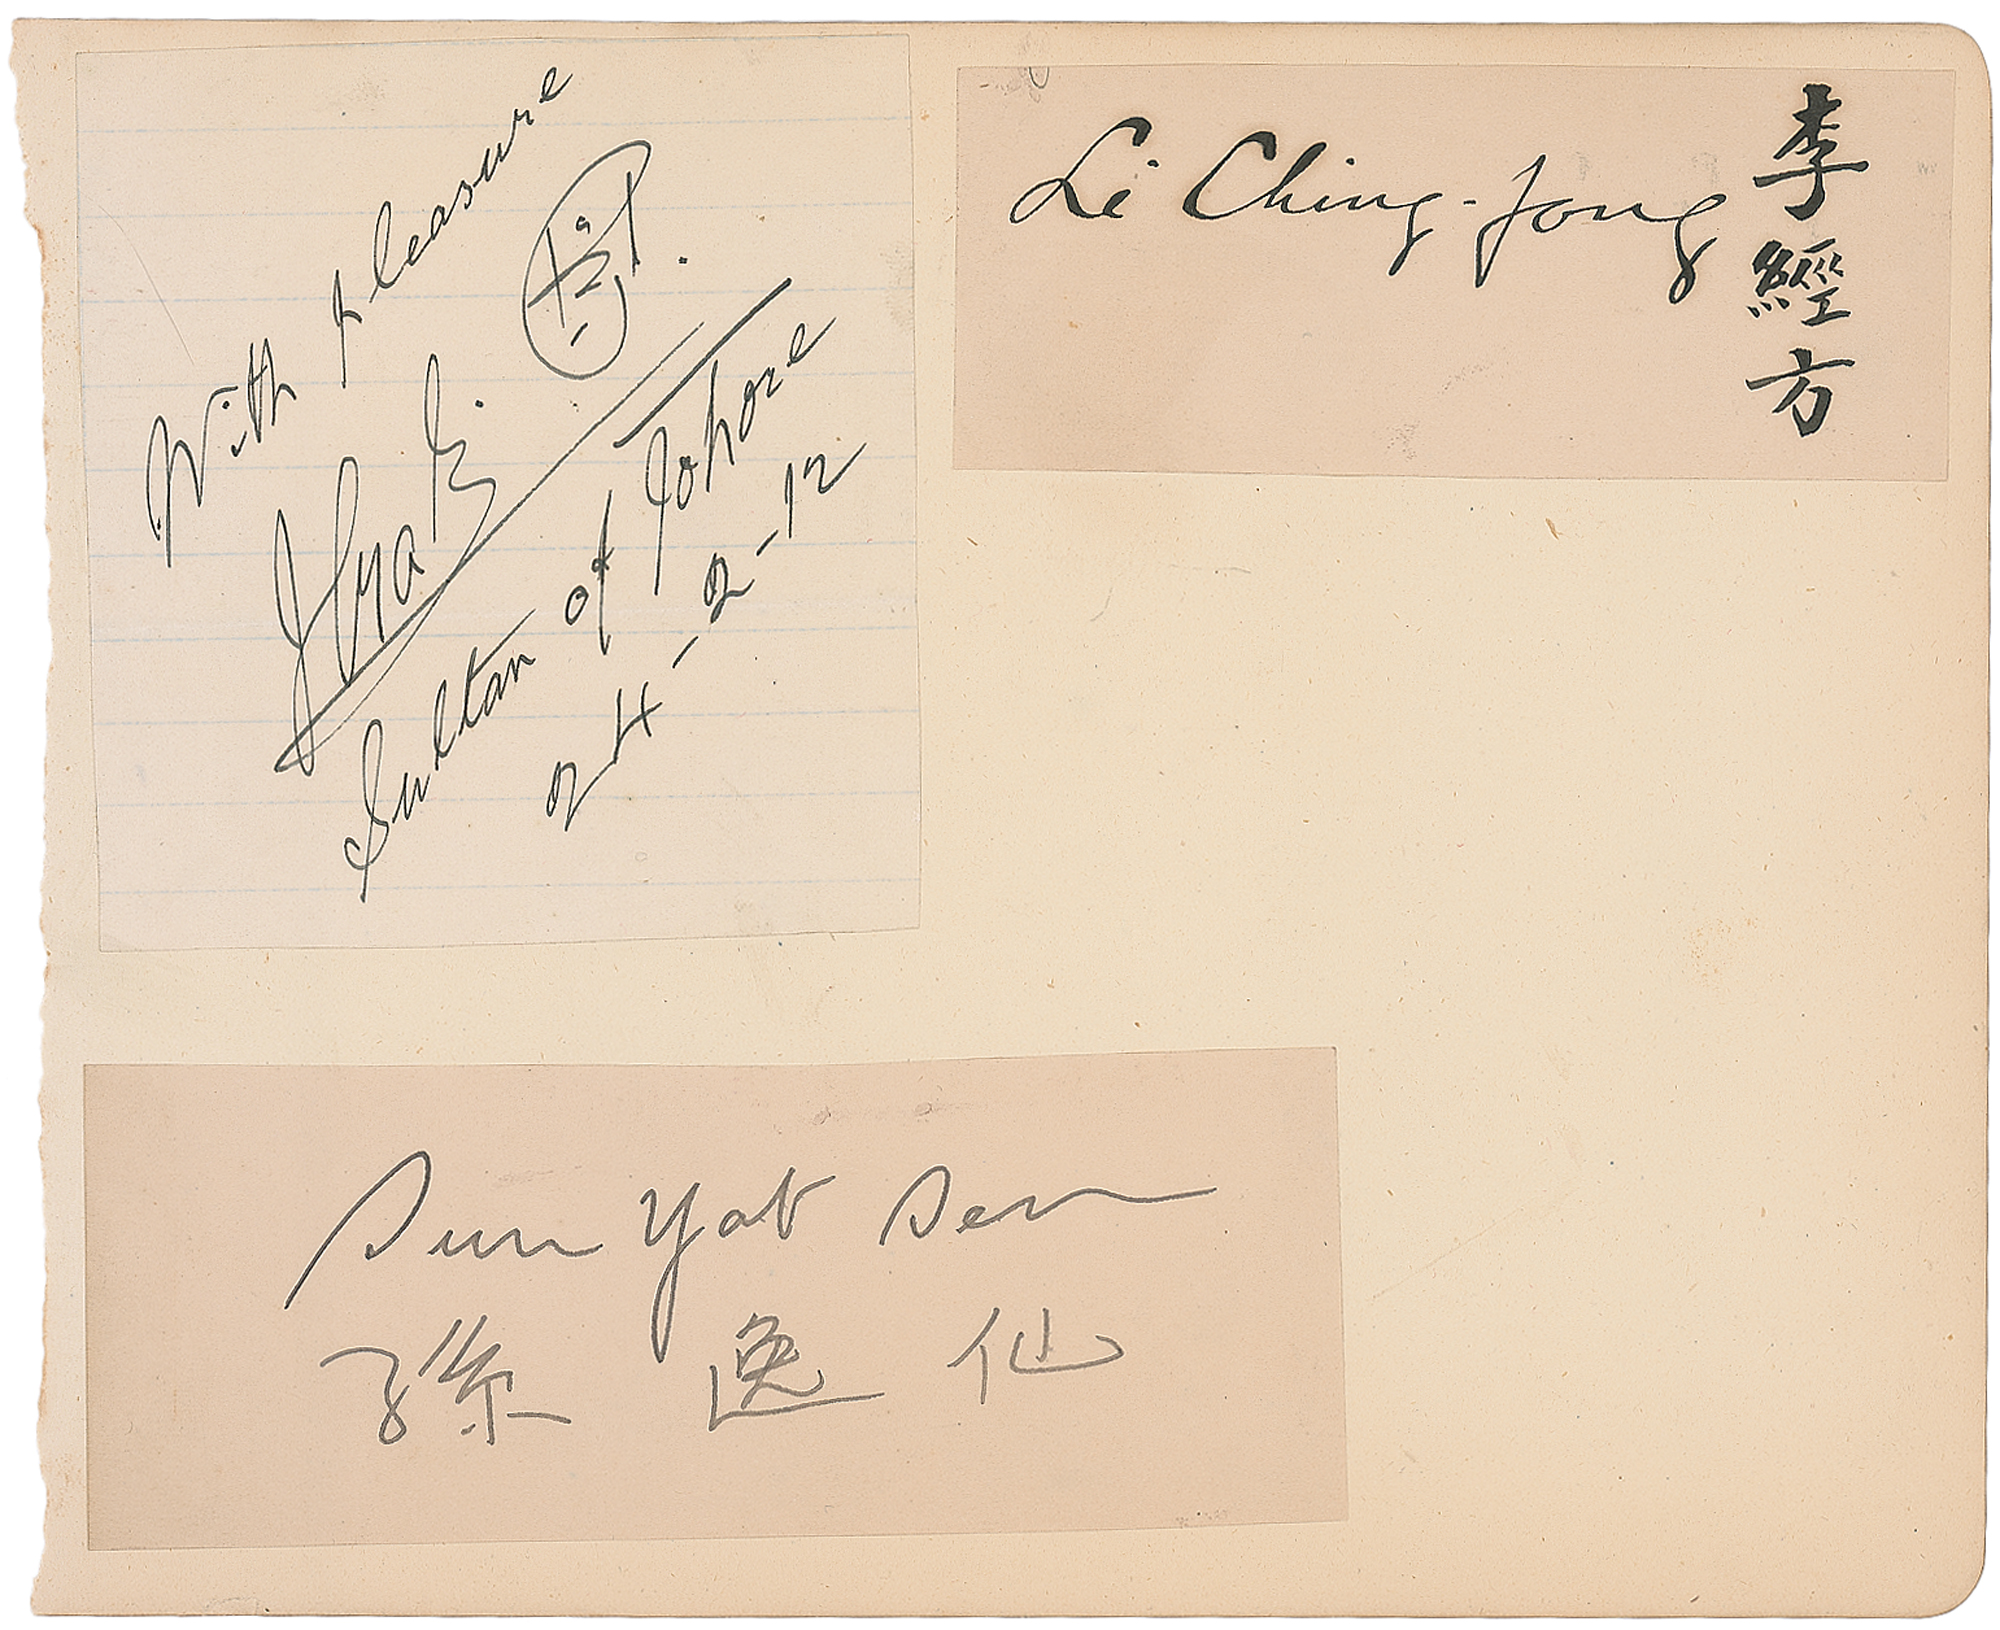 With pleasure
Sultan of Johore
24-2-12
Li Ching-fong
李經方
Sun Yat Sen
孫逸仙